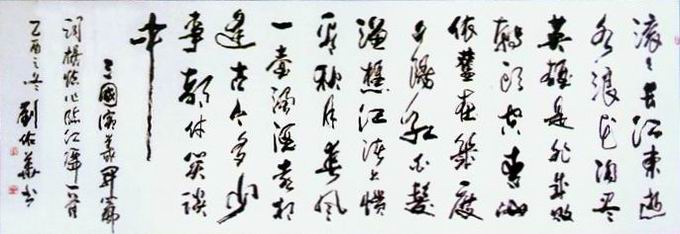 滚〻長江東逝
水浪花淘盡
英雄是非成敗
轉頭空青山
依舊在幾度
夕陽紅白髮
漁樵江渚上慣
看秋月春風
一壺濁酒喜相
逢古今多少
事都付笑談
中
三國演義開篇
詞楊慎作臨江仙一首
乙酉之冬劉佑華书